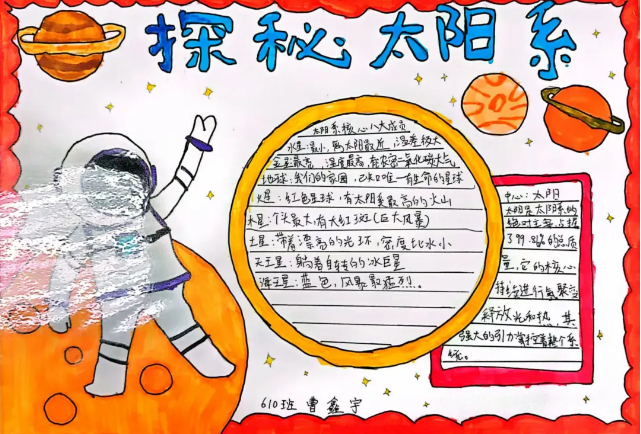 探秘太阳系
太阳系核心八大成员
水星:最小,离太阳最近,温差极大
金星最亮,温度最高,有浓密二氧化碳大气
地球:我们的家园,已知唯一有生命的星球
火星:红色星球,有太阳系最高的火山
木星:个头最大,有大红斑(巨大风暴)
土星:带着漂亮的光环,密度比水小
天王星:躺着自转的冰巨星
海王星:蓝色,风暴最猛烈。
中心:太阳
太阳是太阳系的
绝对主宰,占据
了99.86%的总质
量,它的核心
持续进行氢聚变
释放光和热,其
强大的引力掌控着整个系
统。
610班 曹鑫宇